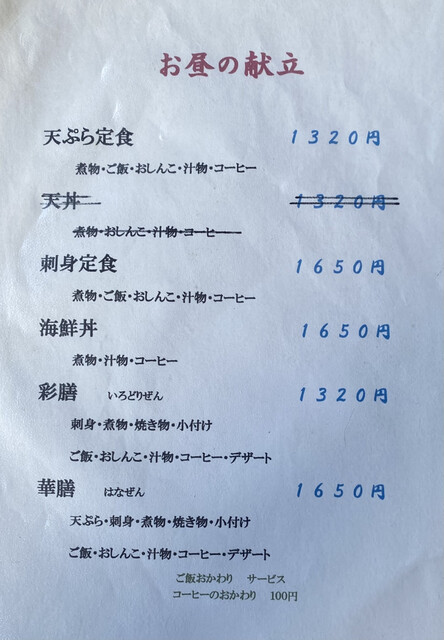 お昼の献立
天ぷら定食 1320円
煮物・ご飯・おしんこ・汁物・コーヒー
天丼 1320円
煮物・おしんこ・汁物・コーヒー
刺身定食 1650円
煮物・ご飯・おしんこ・汁物・コーヒー
海鮮丼 1650円
煮物・汁物・コーヒー
彩膳 いろどりぜん 1320円
刺身・煮物・焼き物・小付け
ご飯・おしんこ・汁物・コーヒー・デザート
華膳 はなぜん 1650円
天ぷら・刺身・煮物・焼き物・小付け
ご飯・おしんこ・汁物・コーヒー・デザート
ご飯おかわり サービス
コーヒーのおかわり 100円